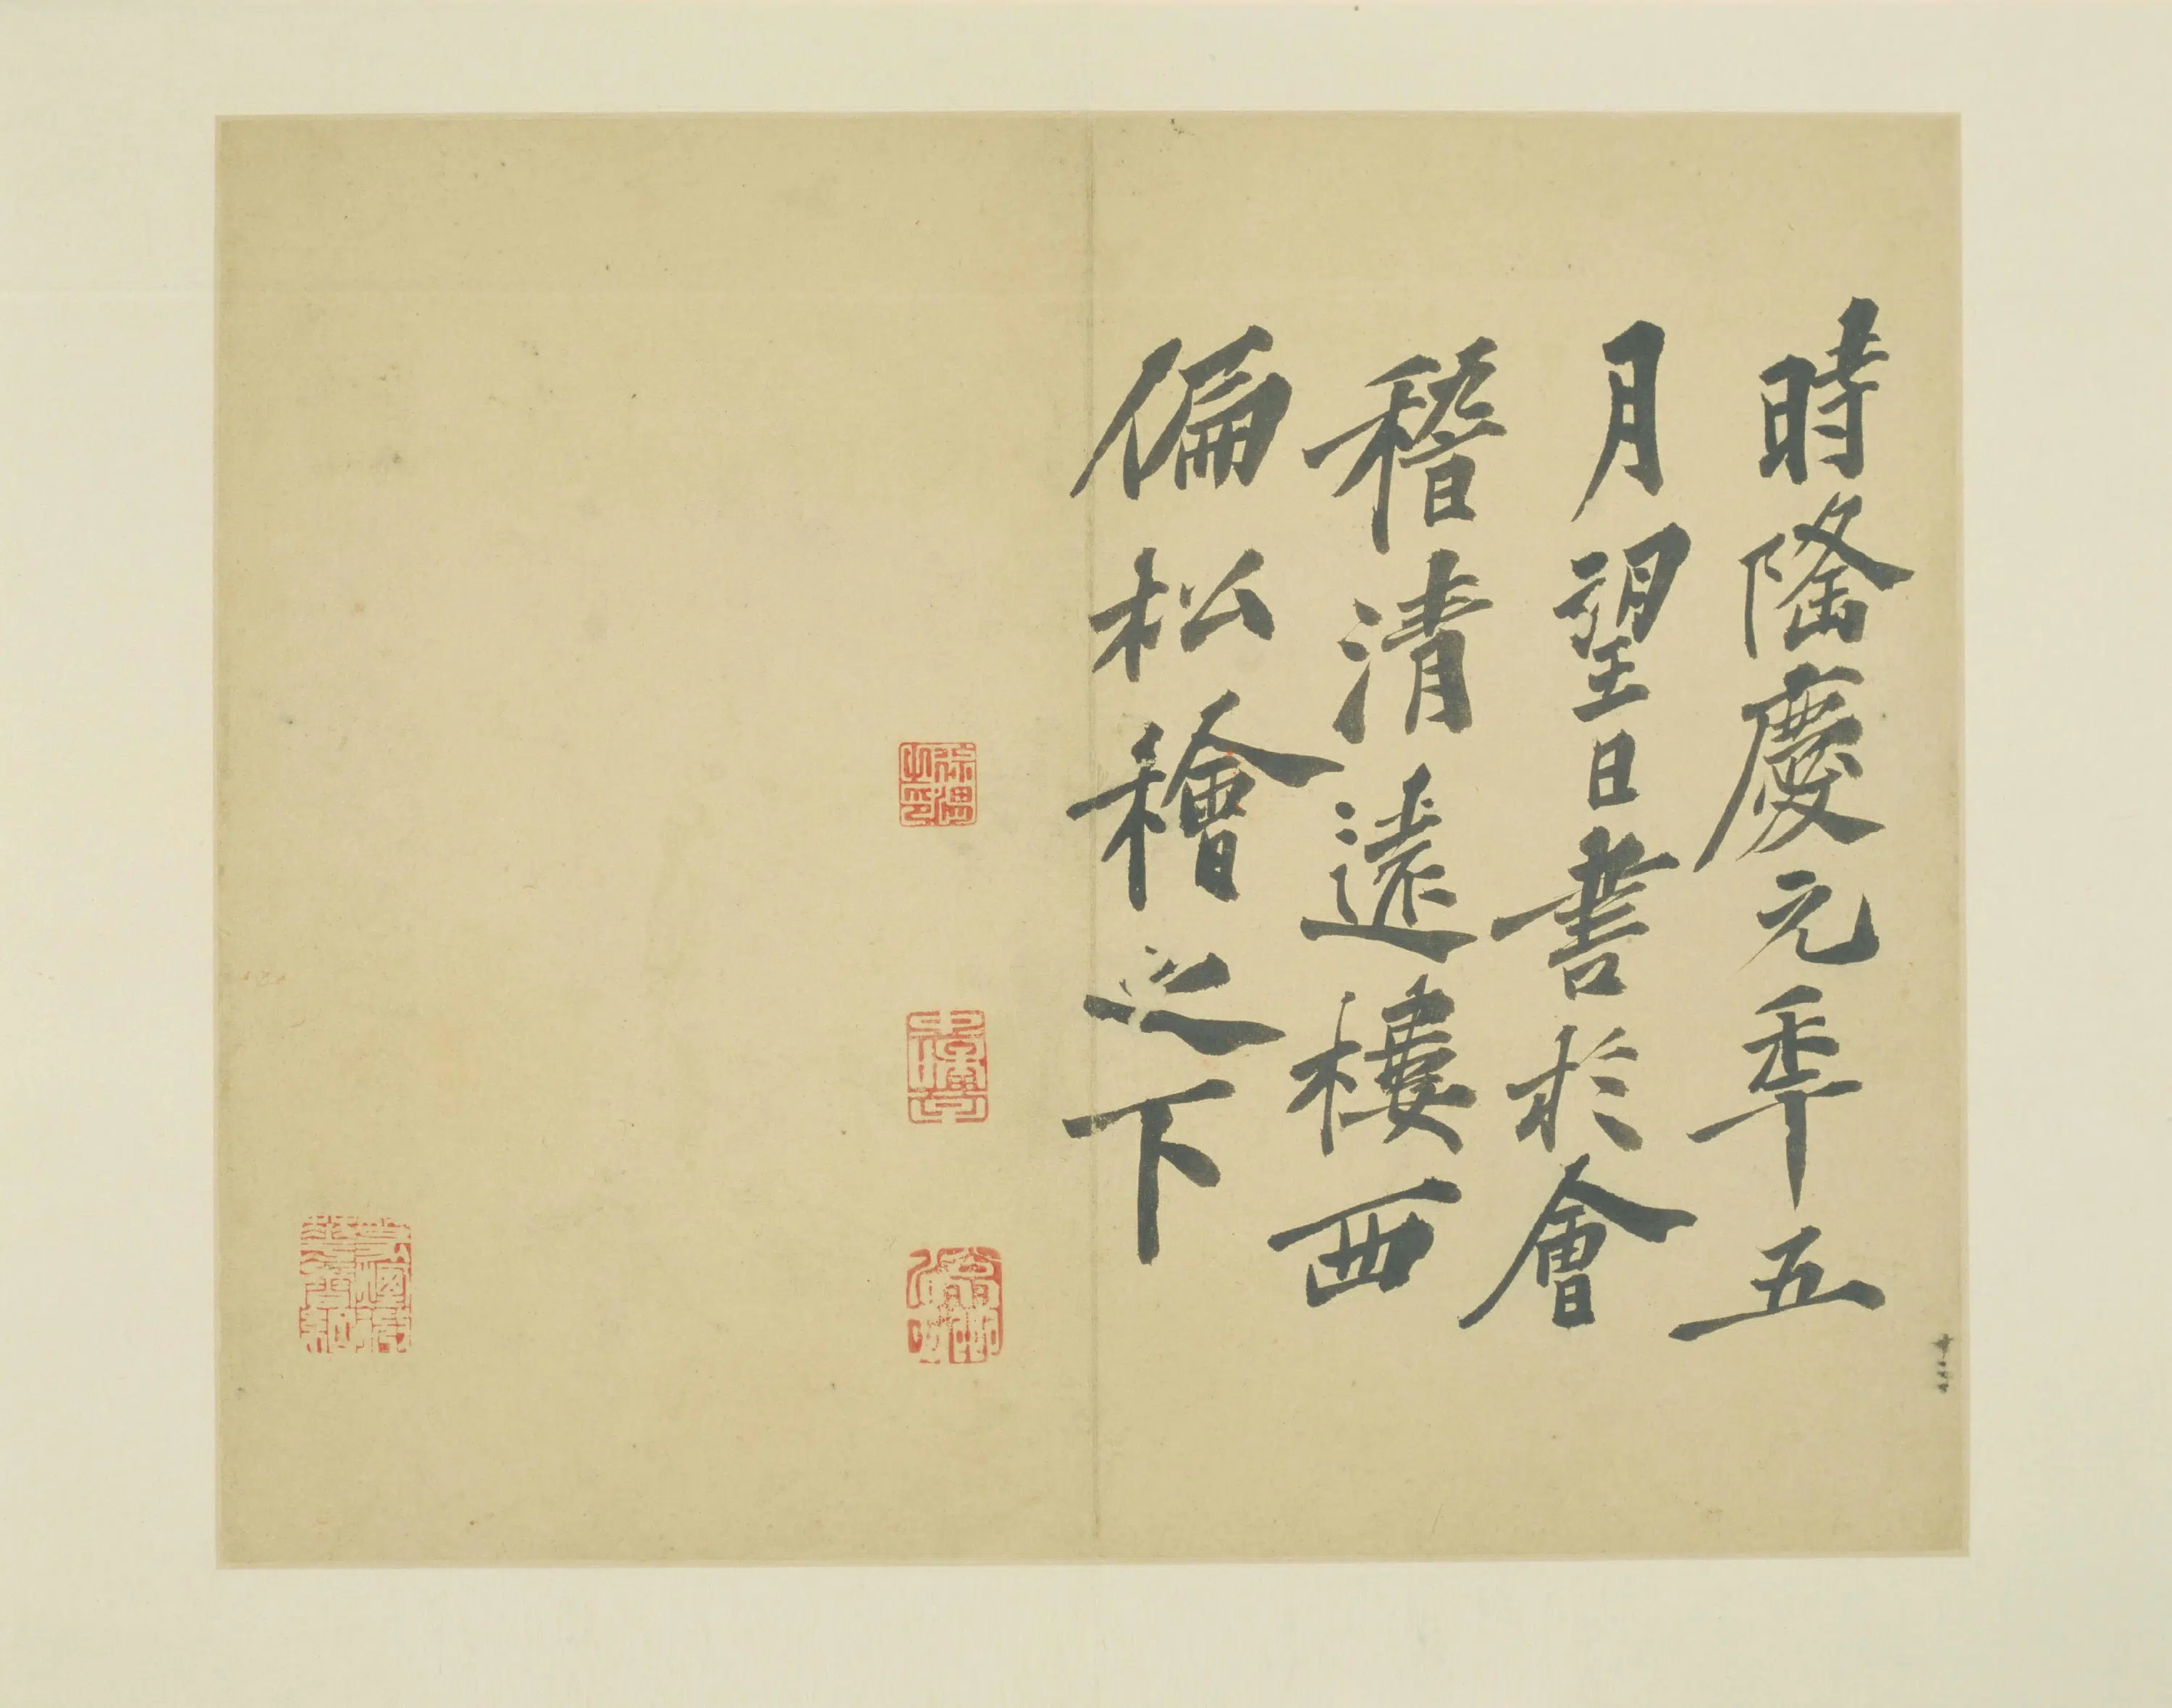 時隆慶元季五
月望日書於會
稽清遠樓西
偏松檜之下
徐渭之印